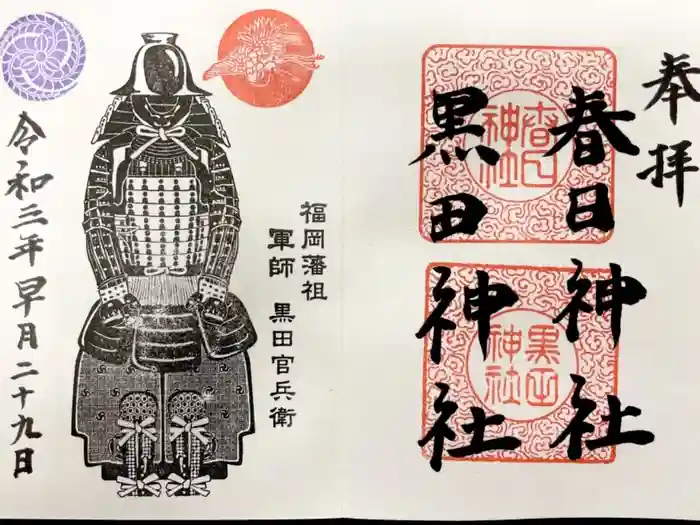 奉拝
春日神社
黒田神社
春日神社
黒田神社
福岡藩祖
軍師 黒田官兵衛
令和三年早月二十九日